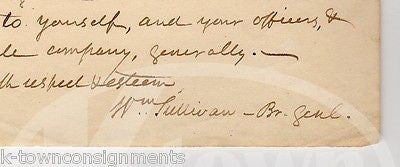 to yourself, and your officers, &
le company, generally. —
th respect & esteem
Wm Sullivan - Br. Genl.
k-townconsignments
k-townconsignments